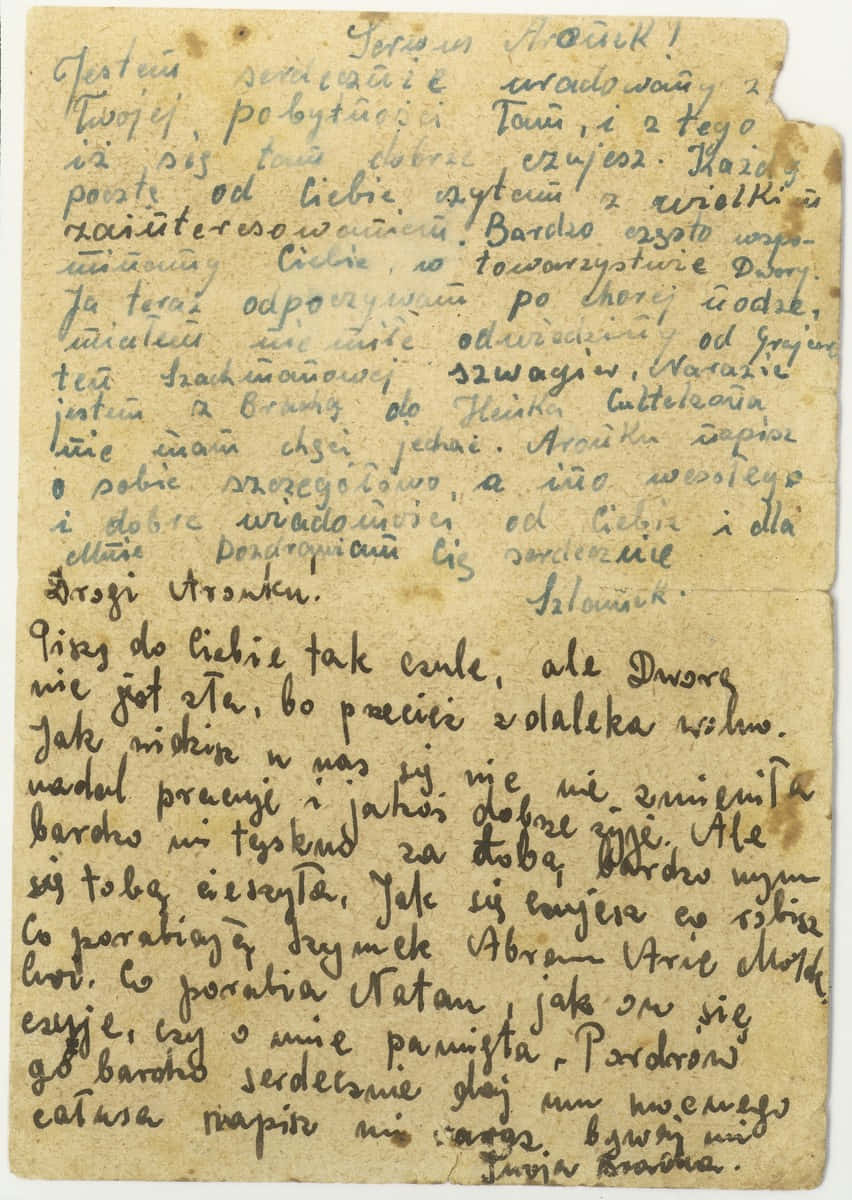 Serwus Aronek!
Jestem serdecznie uradowany z
Twojej pobytności Tam, i z tego
iż się tam dobrze czujesz. Każdą
pocztę od Ciebie czytam z wielkim
zainteresowaniem. Bardzo często wspo-
minamy Ciebie, w towarzystwie Dwory.
Ja teraz odpoczywam po chorej nodze,
miałem nie miłe odwiedziny od
ten Szachmanowej szwagier. Narazie
jestem z Brachą do Heńka
nie mam chęci jechać. Aronku napisz
o sobie szczegółowo, a ino wesołego
i dobre wiadomości od Ciebie i dla
Mnie Pozdrawiam Cię serdecznie
Szlamek.
Drogi Aronku!
Piszę do Ciebie tak czule, ale Dwora
nie jest zła, bo przecież z daleka wolno.
Jak widzisz u nas się nic nie zmieniła
nadal pracuję i jakoś dobrze żyję. Ale
bardzo mi tęskno za tobą, bardzo bym
się tobą cieszyła. Jak się czujesz co robisz
Co porabiają Szymek Abram Arie
Co porabia Natan, jak on się
czuje, czy o mnie pamięta. Pozdrów
go bardzo serdecznie daj mu mocnego
całusa napisz mi zaraz bywaj mi
Twoja